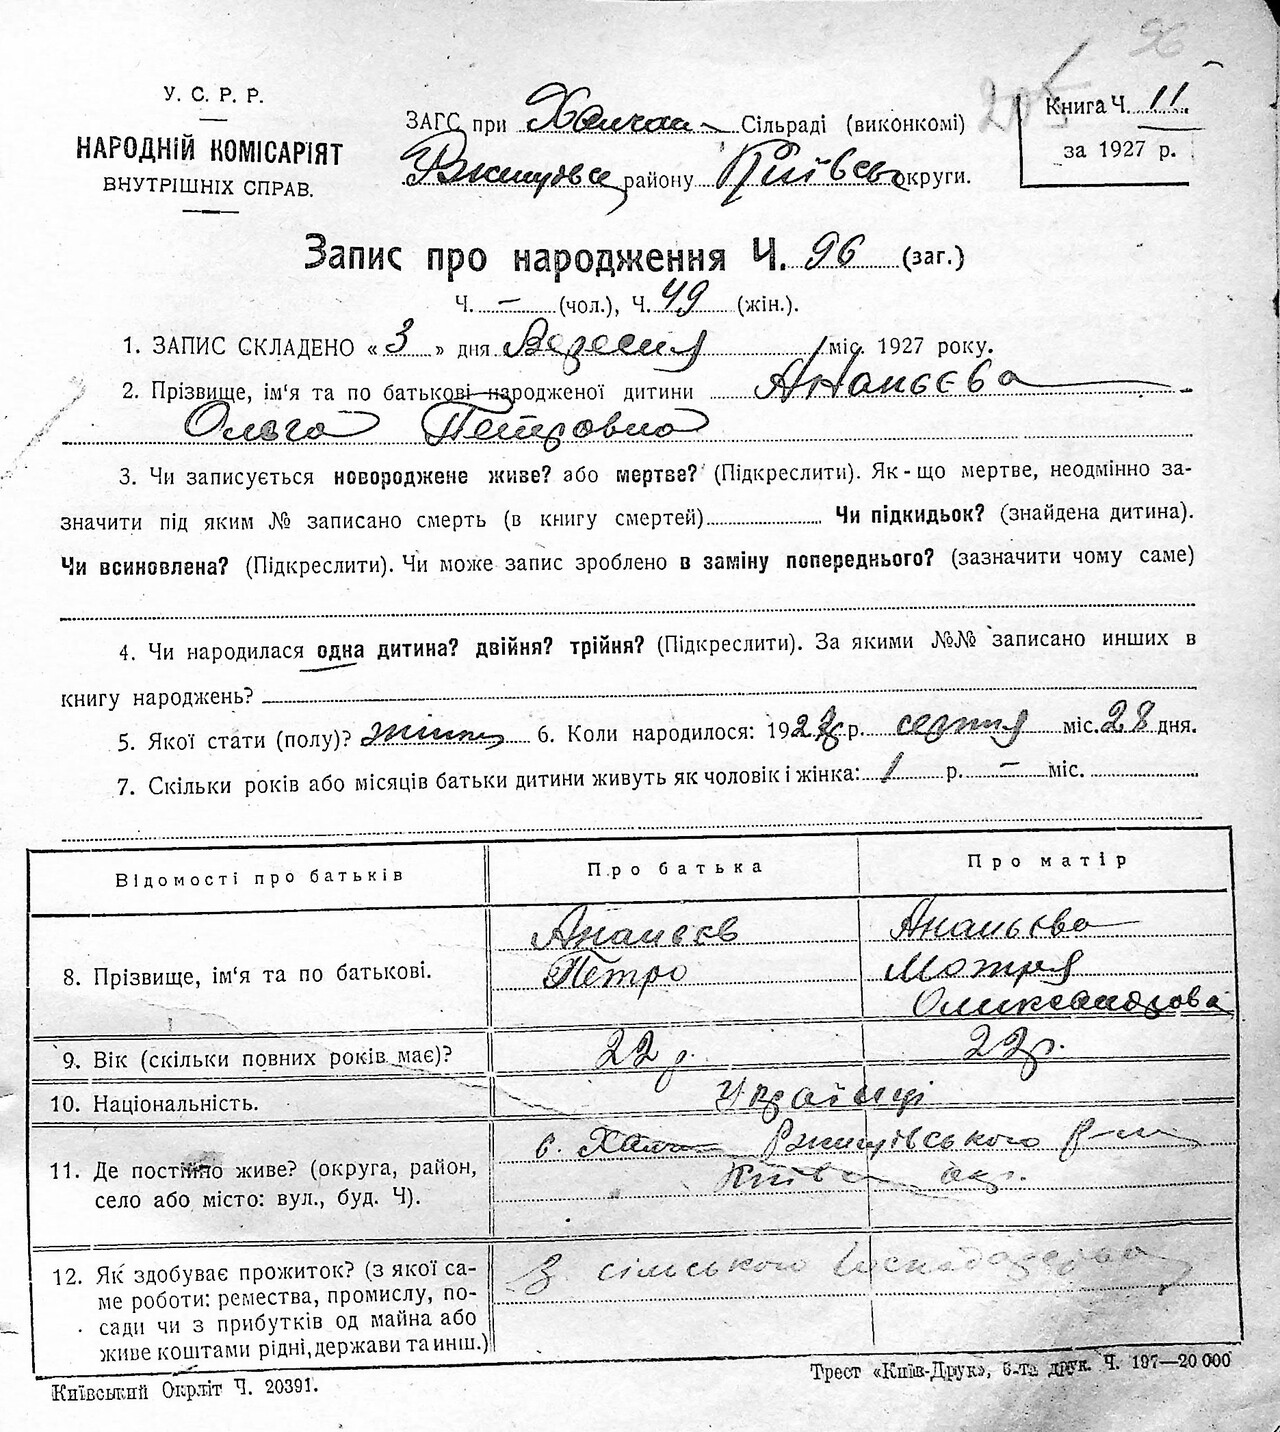 96
205
У. С. Р. Р.
НАРОДНІЙ КОМІСАРІЯТ
ВНУТРІШНІХ СПРАВ.
ЗАГС при Халчан- Сільраді (виконкомі)
Ржищівсь району Київсь округи.
Книга Ч. 11.
за 1927 р.
Запис про народження Ч. 96 (заг.)
Ч. - (чол.), Ч. 49 (жін.).
1. ЗАПИС СКЛАДЕНО «3» дня Вересня міс. 1927 року.
2. Прізвище, ім'я та по батькові народженої дитини Ананьєва
Ольга Петровна
3. Чи записується новороджене живе? або мертве? (Підкреслити). Як-що мертве, неодмінно за-
значити під яким № записано смерть (в книгу смертей) Чи підкидьок? (знайдена дитина).
Чи всиновлена? (Підкреслити). Чи може запис зроблено в заміну попереднього? (зазначити чому саме)
4. Чи народилася одна дитина? двійня? трійня? (Підкреслити). За якими №№ записано инших в
книгу народжень?
5. Якої стати (полу)? жіноч 6. Коли народилося: 192 р. серпня міс. 28 дня.
7. Скільки років або місяців батьки дитини живуть як чоловік і жінка: 1 р. - міс.
Відомості про батьків Про батька Про матір
8. Прізвище, ім'я та по батькові.
Ананєєв Ананьєва
Петро Мотря
Олександрова
9. Вік (скільки повних років має)? 22 р. 22 р.
10. Національність. Українці
11. Де постійно живе? (округа, район,
село або місто: вул., буд. Ч).
с. Халч Ржищівського р-ну
Київс окр.
12. Як здобуває прожиток? (з якої са-
ме роботи: ремества, промислу, по-
сади чи з прибутків од майна або
живе коштами рідні, держави та инш.)
З сільського господарства
Київський Окрліт Ч. 20391.
Трест «Київ-Друк», 6-та друк. Ч. 197—20 000